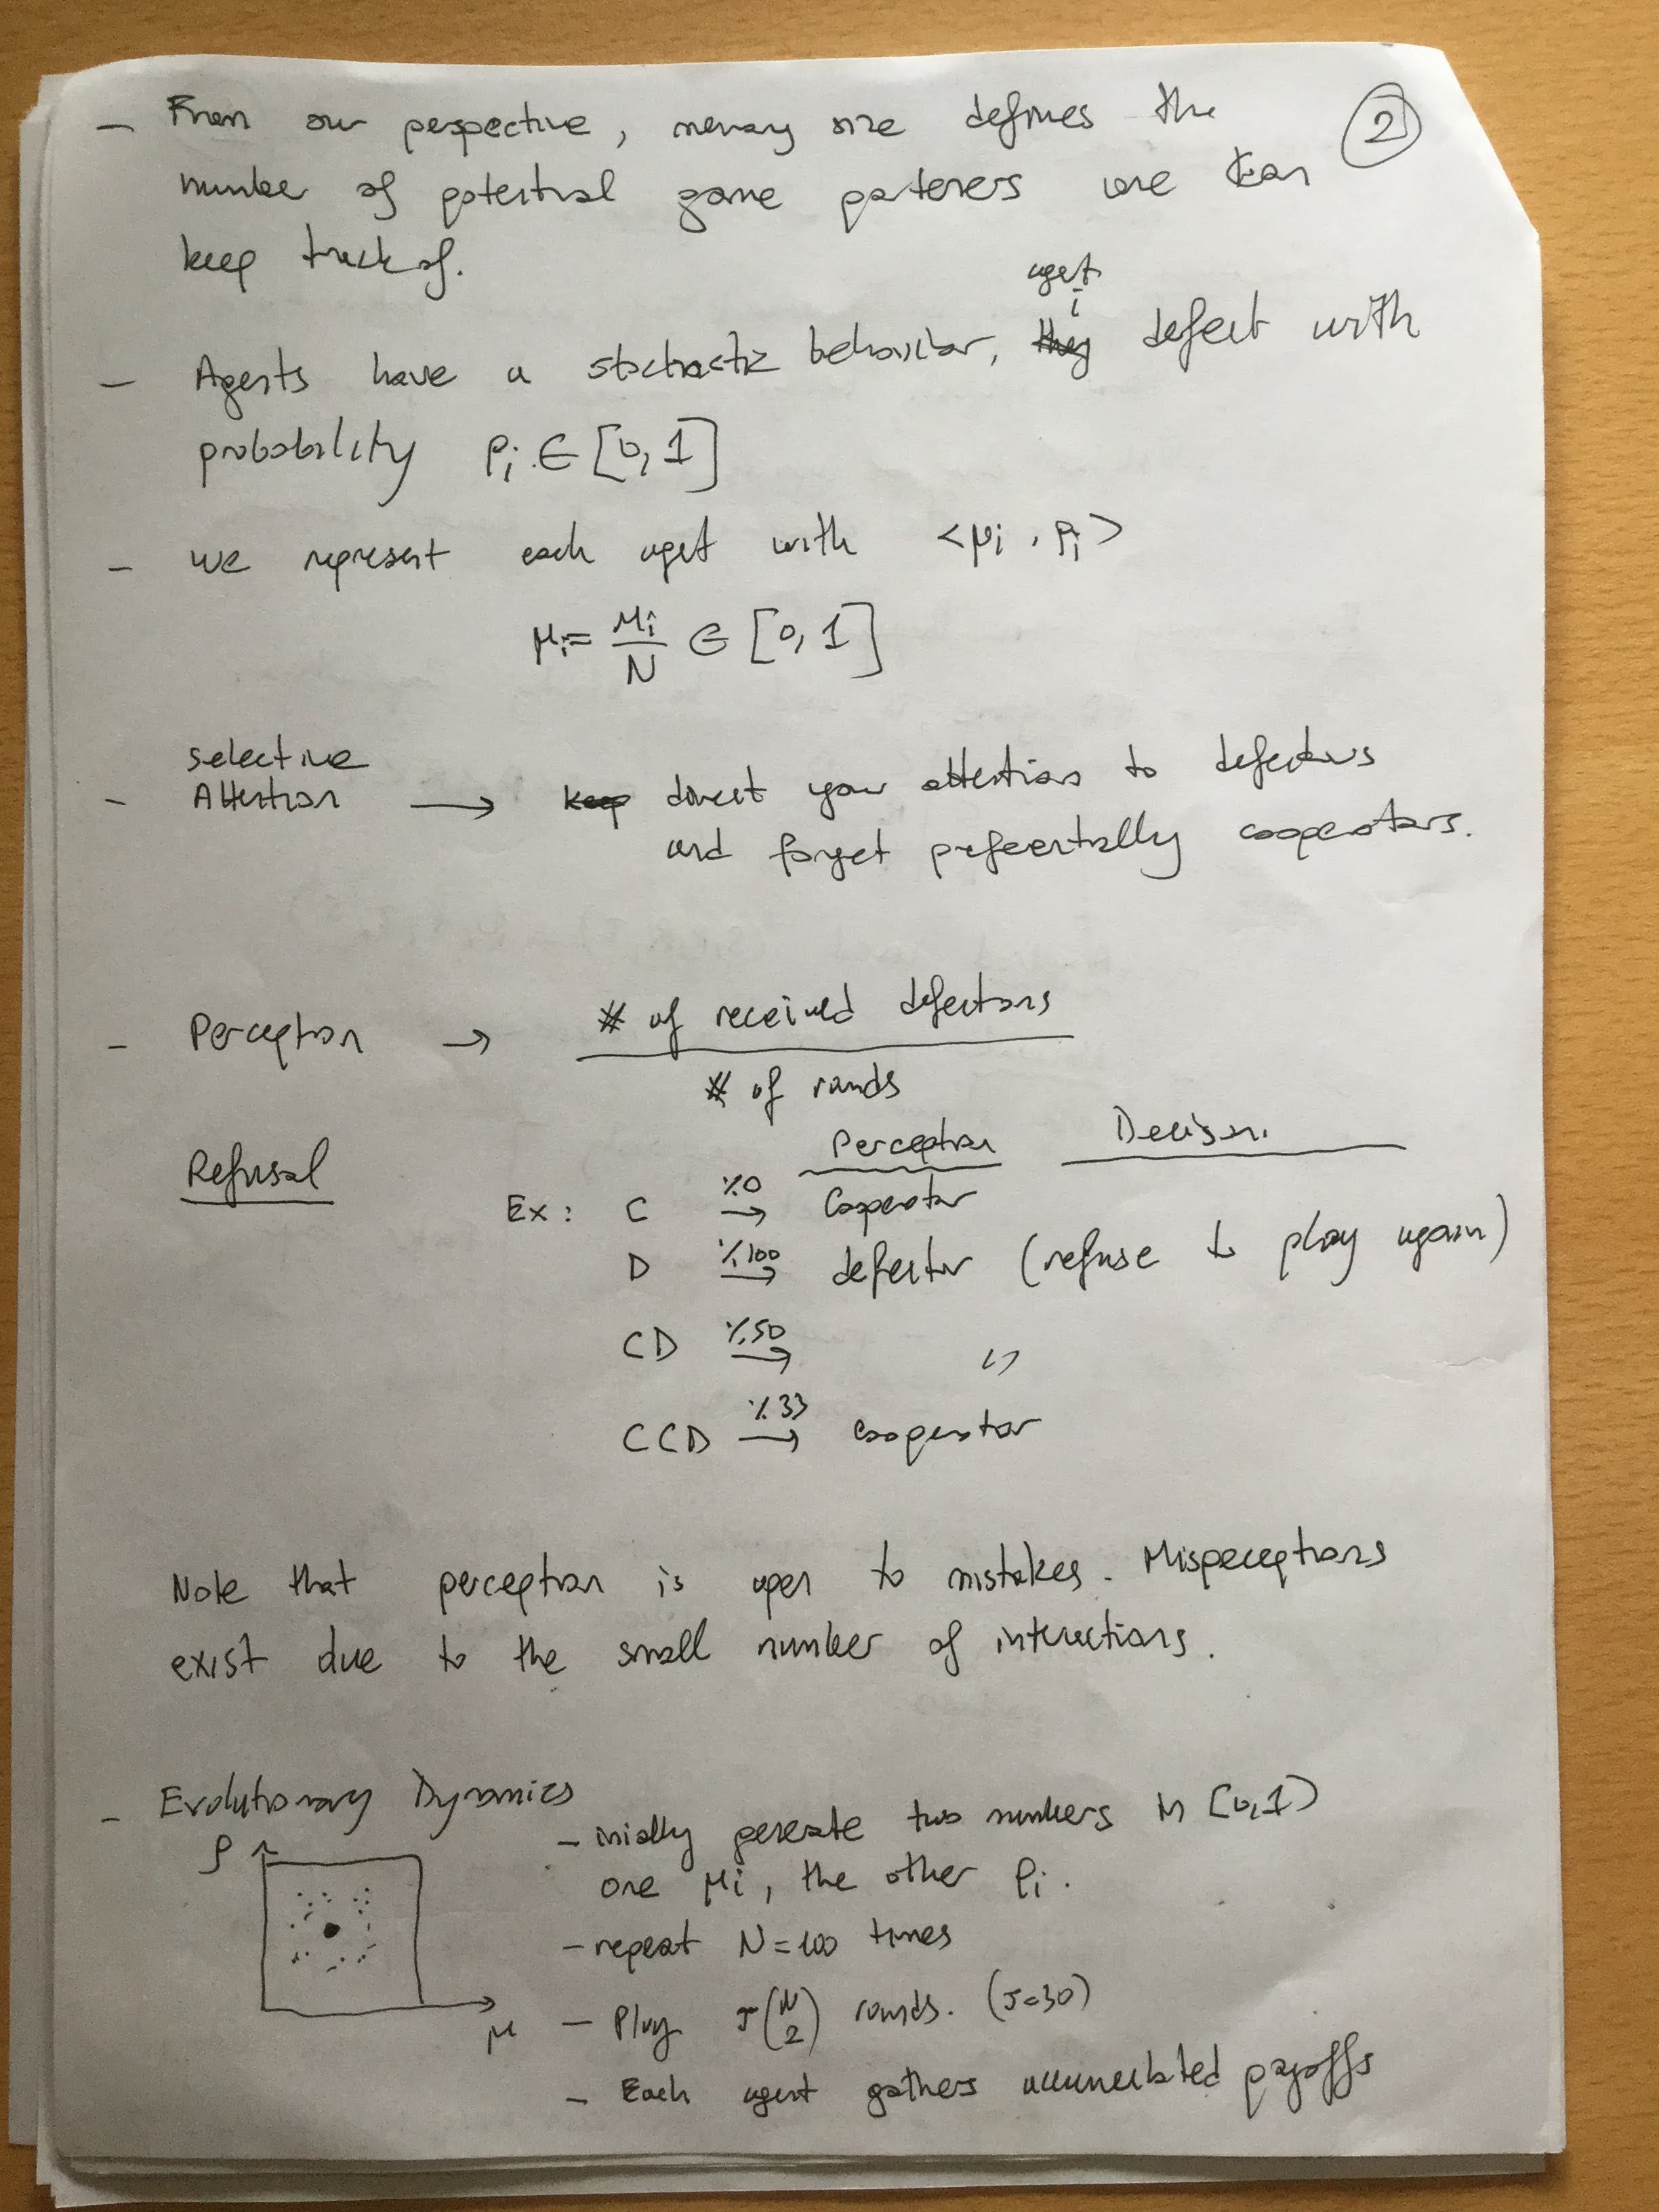 – From our perspective, memory size defines the
②
number of potential game parteners one can
keep track of.
agent
i
– Agents have a stochastic behaviour, they defect with
probability ρi ∈ [0,1]
– we represent each agent with <μi, ρi>
μi = Mi/N ∈ [0,1]
Selective
– Attention → keep direct your attention to defectors
and forget preferentially cooperators.
– Perception → # of received defections
# of rounds
Perception Decision
Refusal
Ex: C %0 → Cooperator
D %100 → defector (refuse to play again)
CD %50 → "
CCD %33 → cooperator
Note that perception is open to mistakes. Misperceptions
exist due to the small number of interactions.
– Evolutionary Dynamics
ρ
μ
– inially generate two numbers in [0,1)
one μi, the other ρi.
– repeat N=100 times
– Play τ(N 2) rounds. (τ=30)
– Each agent gathers accumulated payoffs